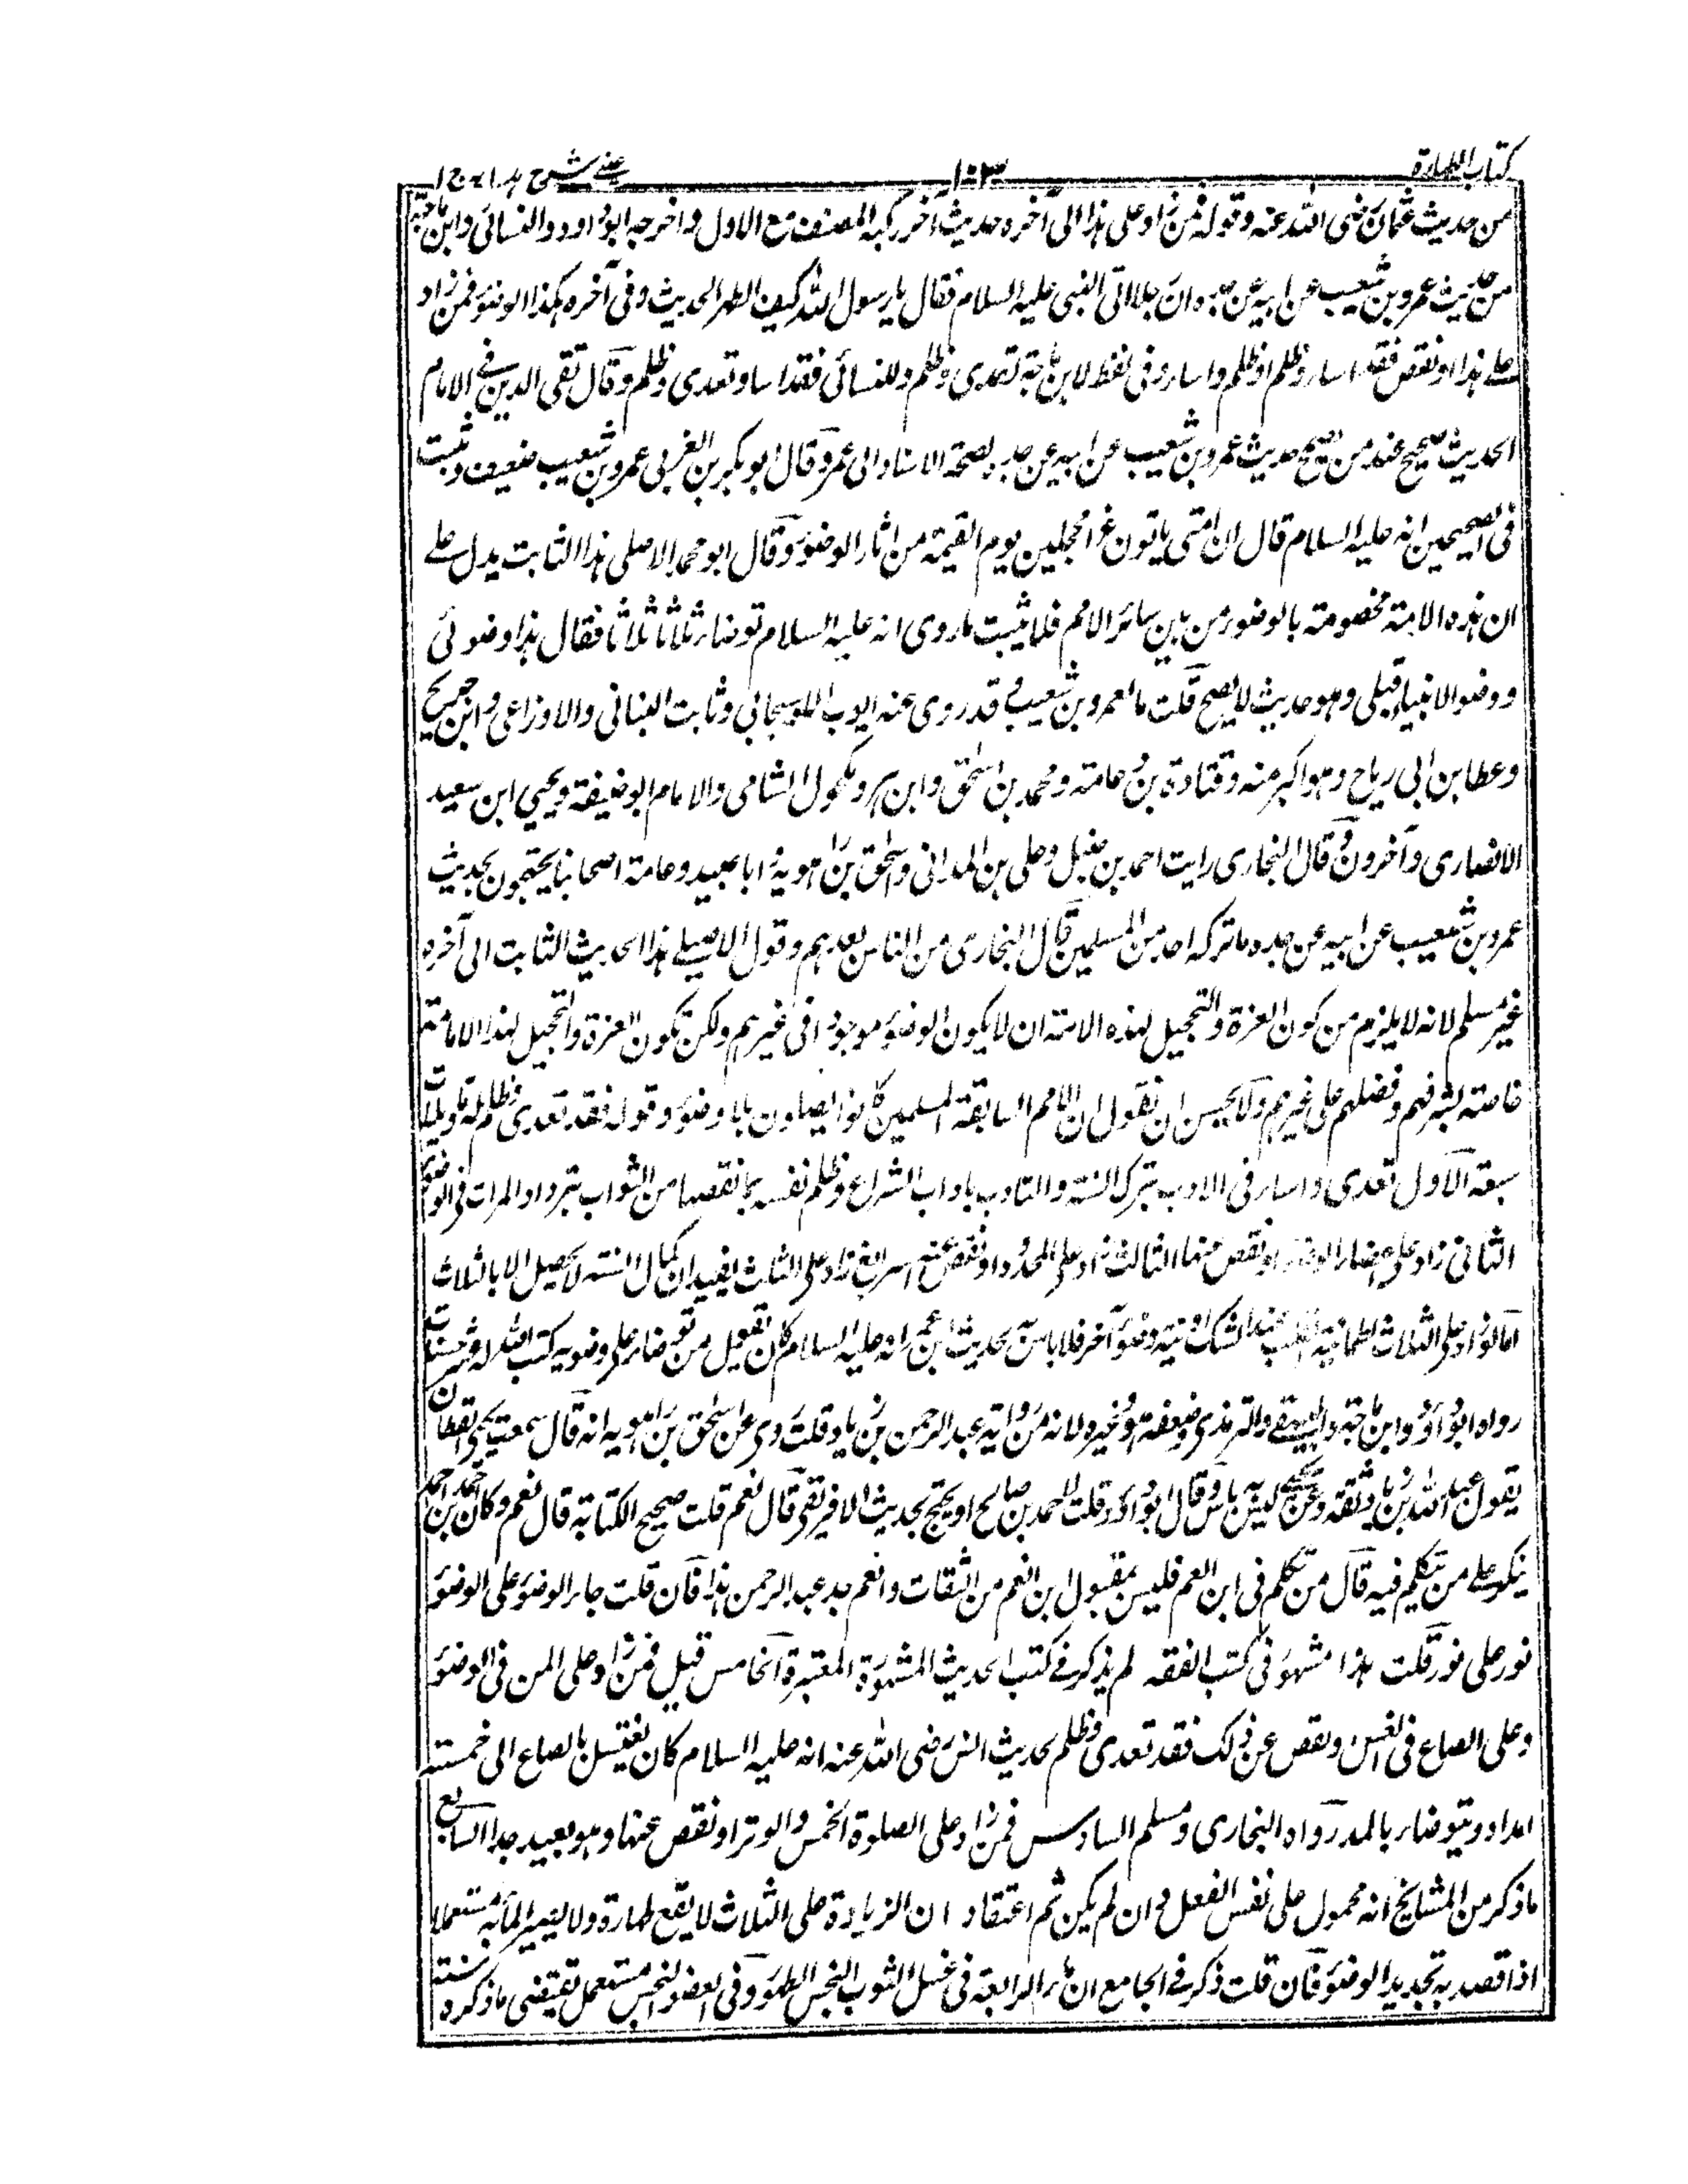 كتاب الطهارة
١٠٣
عينى شرح هدايه ج ١
من حديث عثمان رضى الله عنه وقوله فمن زاد على هذا الى آخره حديث آخر ركبه المصنف مع الاول واخرجه ابو داود والنسائى وابن ماجة
من حديث عمرو بن شعيب عن ابيه عن جده ان رجلا اتى النبى عليه السلام فقال يا رسول الله كيف الطهر الحديث وفى آخره هكذا الوضوء فمن زاد
على هذا او نقص فقد اساء وظلم او ظلم واساء وفى لفظ لابن ماجة تعدى وظلم وللنسائى فقد اساء وتعدى وظلم وقال تقى الدين فى الامام
الحديث صحيح عند من يصحح حديث عمرو بن شعيب عن ابيه عن جده لصحة الاسناد الى عمرو وقال ابو بكر بن العربى عمرو بن شعيب ضعيف وثبت
فى الصحيحين انه عليه السلام قال ان امتى ياتون غرا محجلين يوم القيمة من اثار الوضوء وقال ابو محمد الاصلى هذا الثابت يدل على
ان هذه الامة مخصوصة بالوضوء من بين سائر الامم فلا يثبت ما روى انه عليه السلام توضاء ثلاثا ثلاثا فقال هذا وضوئى
ووضوء الانبياء قبلى وهو حديث لا يصح قلت ما لعمرو بن شعيب وقد روى عنه ايوب السجستانى وثابت البنانى والاوزاعى وابن جريج
وعطا بن ابى رباح وهو اكبر منه وقتادة بن دعامة ومحمد بن اسحق وابن هرو مكحول الشامى والامام ابو حنيفة ويحيى ابن سعيد
الانصارى وآخرون وقال البخارى رايت احمد بن حنبل وعلى بن المدائنى واسحق بن راهويه وابا عبيد وعامة اصحابنا يحتجون بحديث
عمرو بن شعيب عن ابيه عن جده ما تركه احد من المسلمين قال البخارى من الناس بعدهم وقول الاصيلى هذا الحديث الثابت الى آخره
غير مسلم لانه لا يلزم من كون الغرة والتحجيل لهذه الامة ان لا يكون الوضوء موجودا فى غيرهم ولكن تكون الغرة والتحجيل لهذا الامامة
خاصة لشرفهم وفضلهم على غيرهم ولا يحسن ان نقول ان الامم السابقة المسلمين كانوا يصلون بلا وضوء وقوله فقد تعدى وظلم له تاويلات
سبعة الاول تعدى واساء فى الادب بترك السنة والتادب باداب الشرع وظلم نفسه بما نقصها من الثواب بترداد المرات فى الوضوء
الثانى زاد على اعضاء الوضوء او نقص منها الثالث زاد على الحد او نقص عنه الرابع زاد على الثلث يعتقد ان كمال السنة لا يحصل الا بالثلاث
اما لو زاد على الثلاث لطمانية القلب عند الشك او نية وضوء آخر فلا باس به لحديث ابن عمر انه عليه السلام كان يقول من توضاء على وضوء كتب الله له عشر حسنات
رواه ابو داود وابن ماجة والبيهقى والترمذى وضعفه وغيره لانه من رواية عبد الرحمن بن زياد قلت روى عن اسحق بن راهويه انه قال سمعت يحيى القطان
يقول عبد الله بن زياد ثقة وعن يحيى ليس به باس وقال ابو داود قلت لاحمد بن صالح او يحتج بحديث الافريقى قال نعم قلت صحيح الكتابة قال نعم وكان احمد بن احمد
ينكر على من تكلم فيه قال من تكلم فى ابن انعم فليس بمقبول ابن انعم من الثقات وانعم جد عبد الرحمن هذا فان قلت جاء الوضوء على الوضوء
نور على نور قلت هذا مشهور فى كتب الفقه لم يذكر فى كتب الحديث المشهورة المعتبرة الخامس قيل فمن زاد على المن فى الوضوء
وعلى الصاع فى الغسل ونقص عن ذلك فقد تعدى وظلم لحديث انس رضى الله عنه انه عليه السلام كان يغتسل بالصاع الى خمسة
امداد ويتوضاء بالمد رواه البخارى ومسلم السادس فمن زاد على الصلوة الخمس والوتر او نقص عنها وهو بعيد جدا السابع
ما ذكر من المشايخ انه محمول على نفس الفعل وان لم يكن ثم اعتقاد ان الزيادة على الثلاث لا يقع طهارة ولا يصير الماء به مستعملا
اذا قصد به تجديد الوضوء فان قلت ذكر فى الجامع ان ماء الرابعة فى غسل الثوب النجس طهور وفى العضو النجس مستعمل تقتضى ما ذكره